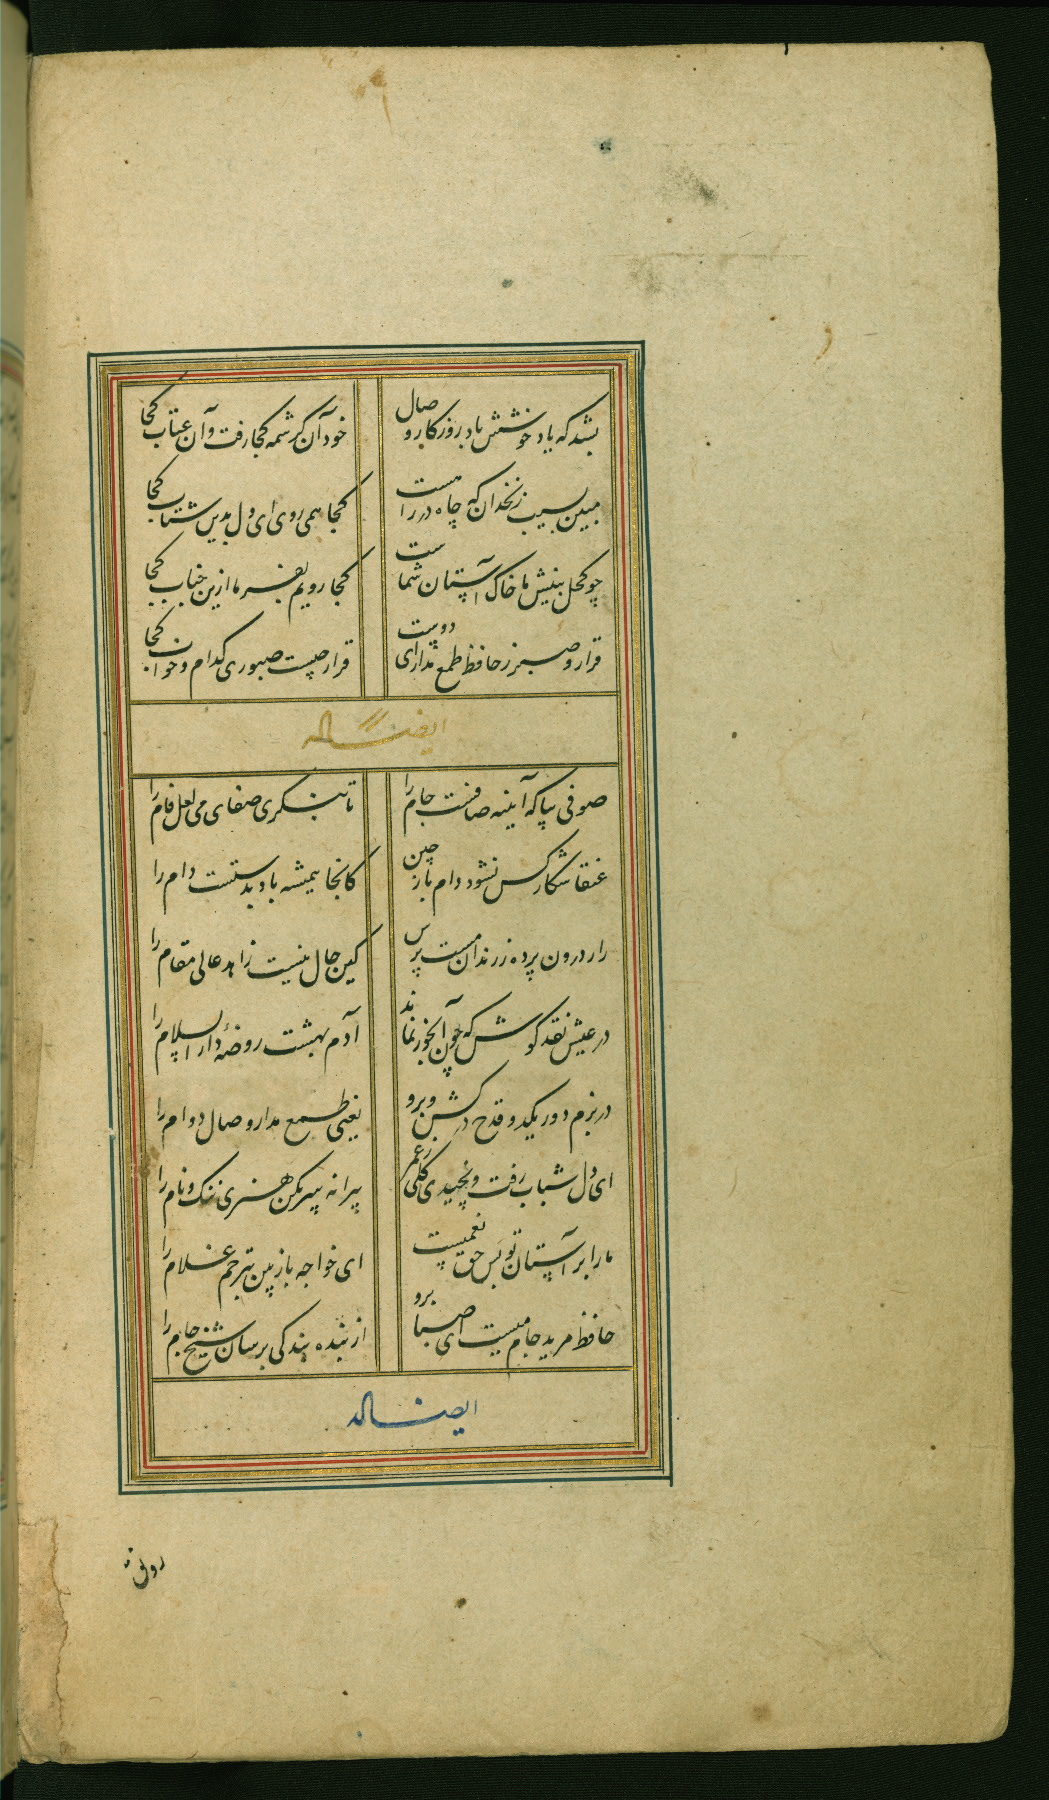 بشد که یاد خوشش باد روزکار وصال خود آن کرشمه کجا رفت و آن عتاب کجا
مبین بسیب زنخدان که چاه در راهست کجا همی روی ای دل بدین شتاب کجا
چو کحل بینش ما خاک آستان شماست کجا رویم بفرما ازین جناب کجا
قرار و صبر ز حافظ طمع مدار ای دوست قرار چیست صبوری کدام و خواب کجا
ایضا له
صوفی بیا که آینه صافیست جام را تا بنکری صفای می لعل فام را
عنقا شکار کس نشود دام باز چین کانجا همیشه باد بدستست دام را
راز درون پرده ز رندان مست پرس کین حال نیست زاهد عالی مقام را
در عیش نقد کوش که چون آبخور نماند آدم بهشت روضهٔ دار السلام را
در بزم دور یکدو قدح در کش و برو یعنی طمع مدار وصال دوام را
ای دل شباب رفت و نچیدی کلی ز عمر پیرانه سر مکن هنری ننک و نام را
ما را بر آستان تو بس حق نعمتست ای خواجه باز بین بترحم غلام را
حافظ مرید جام میست ای صبا برو از بنده بندکی برسان شیخ جام را
ایضا له
رونق